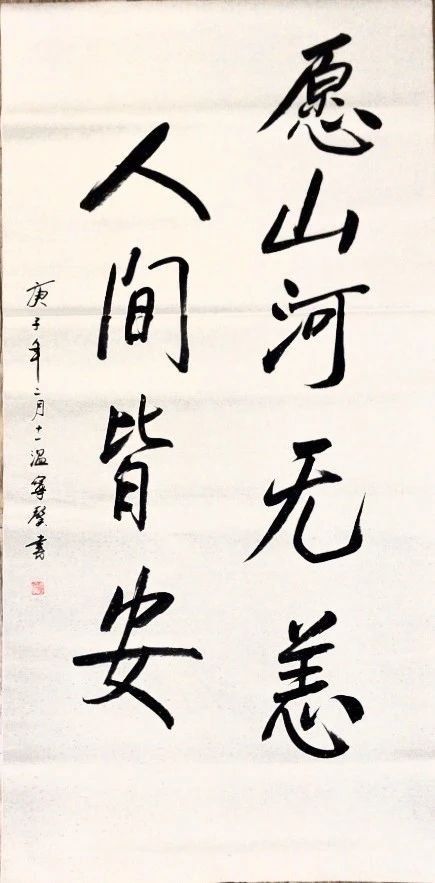 愿山河无恙
人间皆安
庚子年二月十一温写磬书